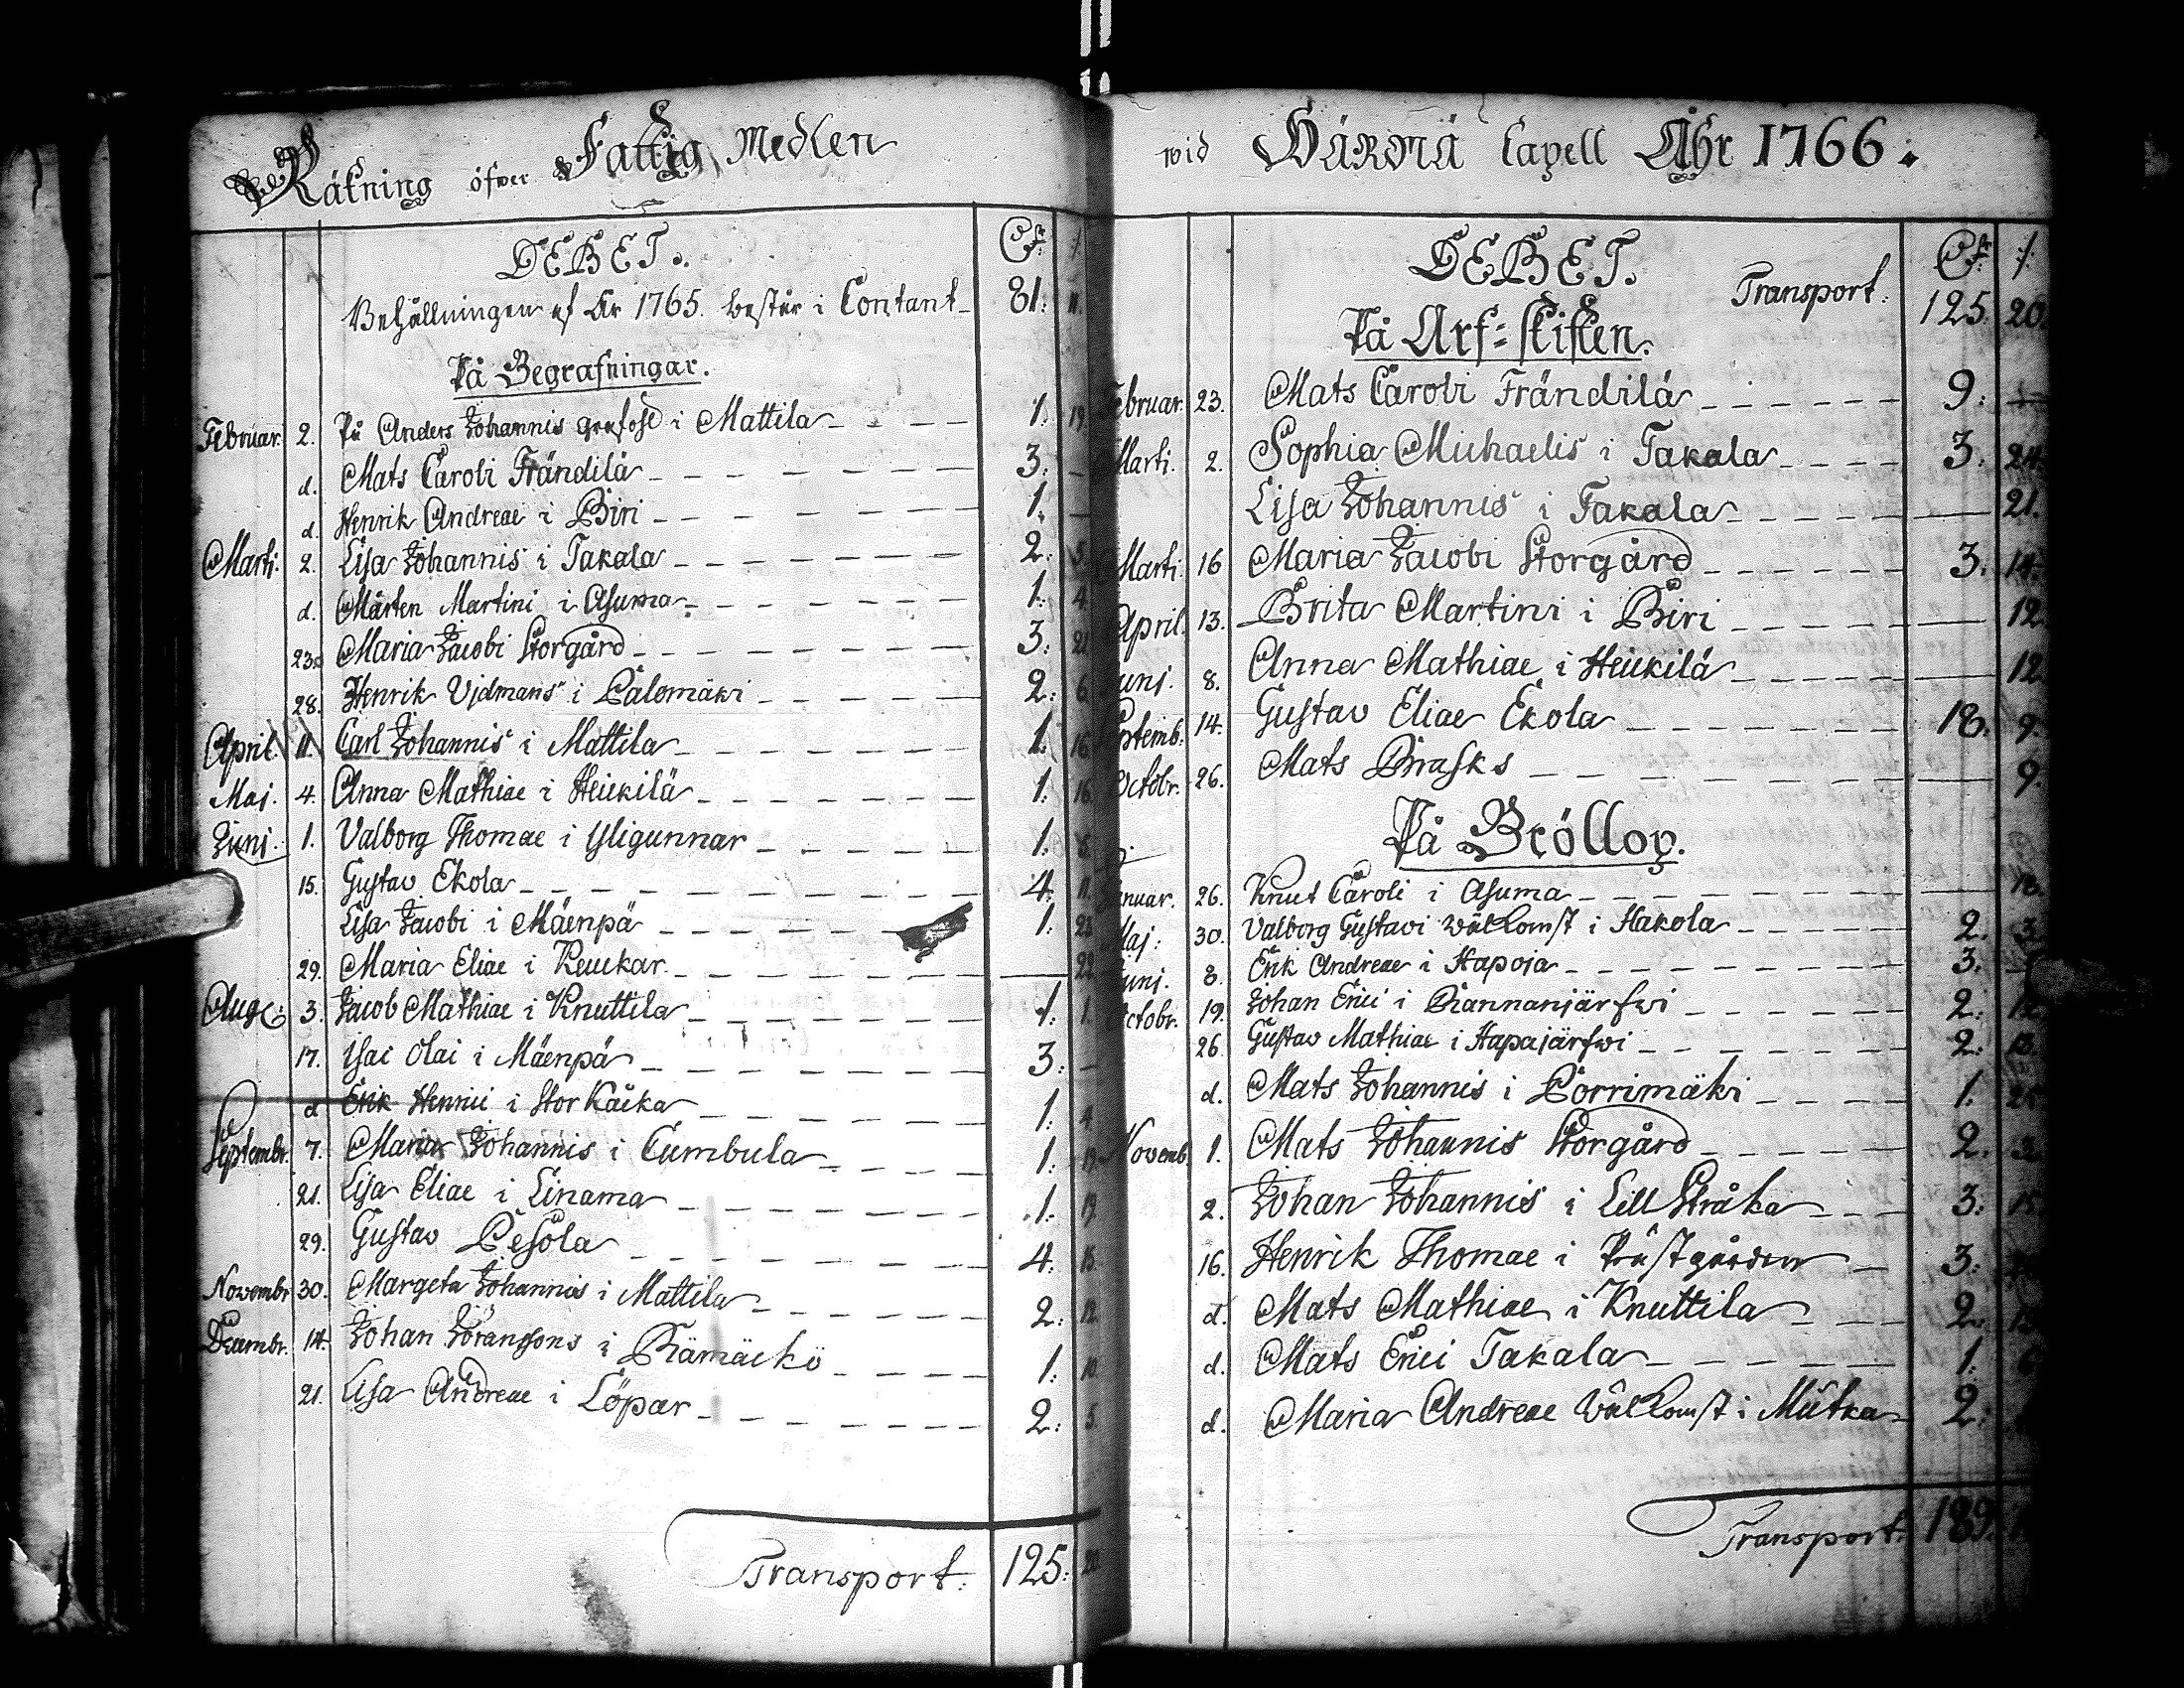 Räkning öfwer Fattig Medlen
DEBET.
Behållningen af År 1765. består i Contant 81: 11.
På Begrafningar.
Februar. 2. På Anders Johannis grafohl i Mattila 1. 19.
d. Mats Caroli Frändilä 3. —
d. Henrik Andreae i Biri 1. —
Marti. 2. Lisa Johannis i Takala 2. 5.
d. Mårten Martini i Asuma 1. 4
23. Maria Jacobi Storgård 3. 21
28. Henrik Vidmans i Palomäki 2. 6.
April. 11. Carl Johannis i Mattila 1. 16.
Maj. 4. Anna Mathiae i Heickilä 1. 16.
Junj. 1. Valborg Thomae i Yligunnar 1. 5.
15. Gustav Ekola 4. 11.
Lisa Jacobi i Mäenpä 1. 23
29. Maria Eliae i Keuckar — 22.
Aug: 3. Jacob Mathiae i Knuttila 1. 1.
17. Isai Olai i Mäenpä 3. —
d. Erik Henrici i Stor Kåcka 1. 4
Septembr. 7. Maria Johannis i Cumbula 1. 19.
21. Lisa Eliae i Linama 1. 19.
29. Gustav Pesola 4. 15.
Novembr 30. Margeta Johannis i Mattila 2. 12.
Decembr. 14. Johan Göranssons i Rämäckö 1. 10.
21. Lisa Andreae i Löpar 2. 5.
Transport. 125. 20.
wid Härmä Capell Åhr 1766.
DEBET.
Transport. 125. 20.
På Arf-skiften.
Februar. 23. Mats Caroli Frändilä 9. —
Marti. 2. Sophia Michaelis i Takala 3. 24.
Lisa Johannis i Takala — 21.
Marti. 16 Maria Jacobi Storgård 3. 14.
April. 13. Brita Martini i Biri — 12.
Junj. 8. Anna Mathiae i Heickilä — 12
Septemb. 14. Gustav Eliae Ekola 18. 9.
Octobr. 26. Mats Brasks — 9.
På Bröllop.
Januar. 26. Knut Caroli i Asuma — 18.
Maj: 30. Valborg Gustavi wälkomst i Hakola 2. 3.
Junj. 8. Erik Andreae i Hapoja 3. —
Octobr. 19. Johan Erici i Kannanjärfwi 2. 12.
26. Gustav Mathiae i Hapajärfwi 2. 13.
d. Mats Johannis i Porrimäki 1. 25
Novemb. 1. Mats Johannis Storgård 2. 3.
2. Johan Johannis i Lill Stråka 3. 15.
16. Henrik Thomae i Prästgården 3.
d. Mats Mathiae i Knuttila 2. 15
d. Mats Erici Takala 1. 6
d. Maria Andreae Wälkomst i Mutka 2.
Transport. 189.